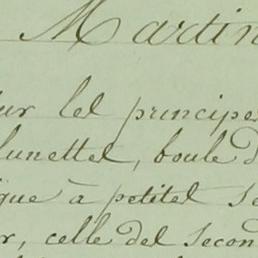 Martin
ur les principes
lunettes, boule d
que à petites se
r, celle des secon